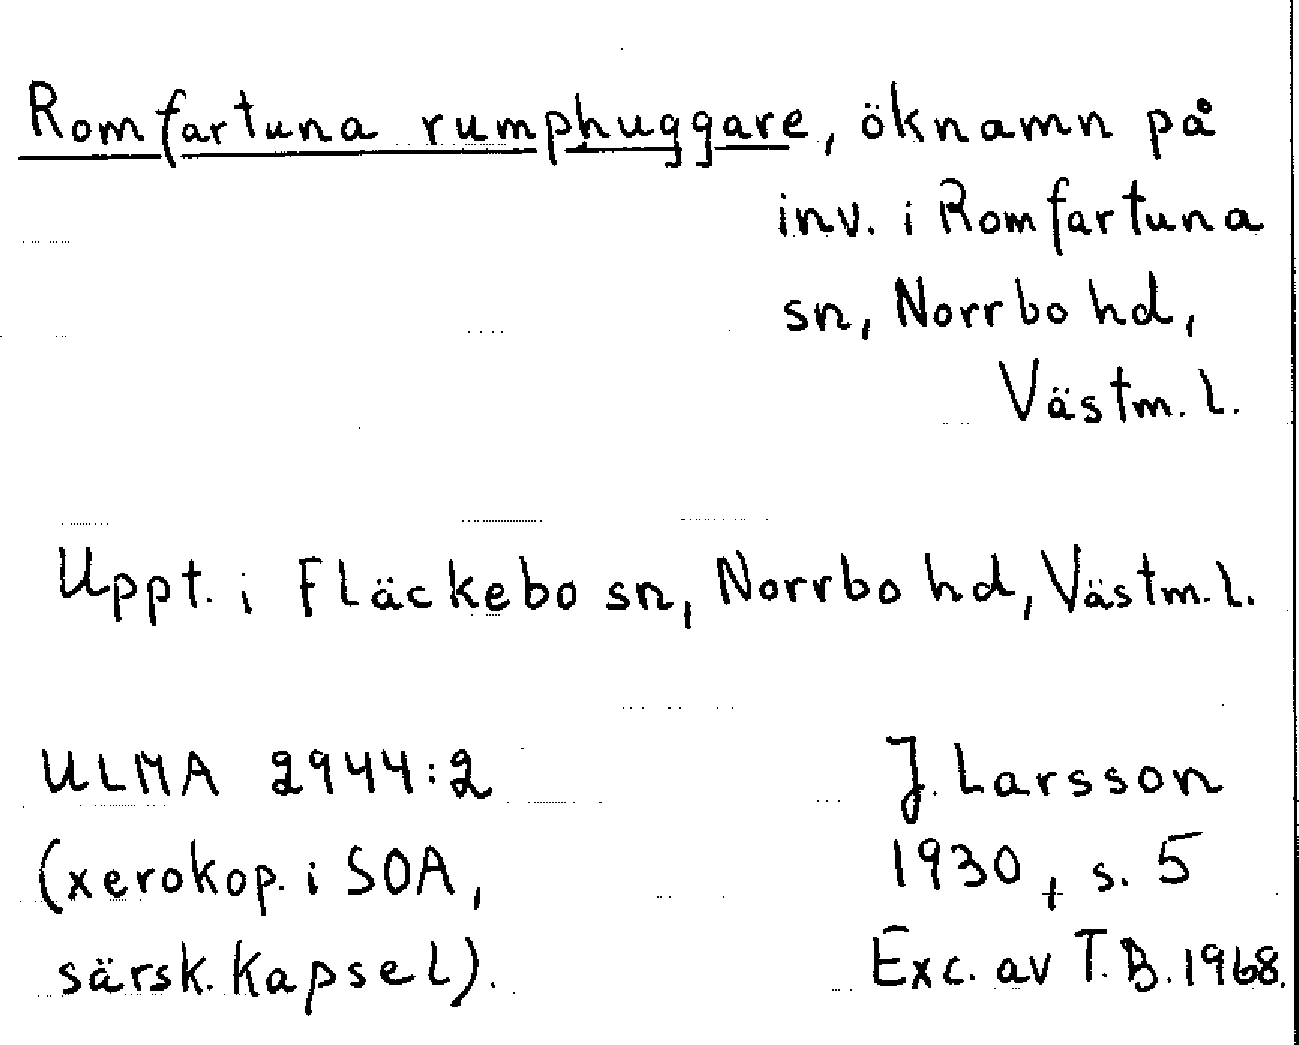 Romfartuna rumphuggare, öknamn på
inv. i Romfartuna
sn, Norrbo hd,
Västm. l.
Uppt. i Fläckebo sn, Norrbo hd, Västm. l.
ULMA 2944:2
(xerokop. i SOA,
särsk. kapsel).
J. Larsson
1930, s. 5
Exc. av T. B. 1968.